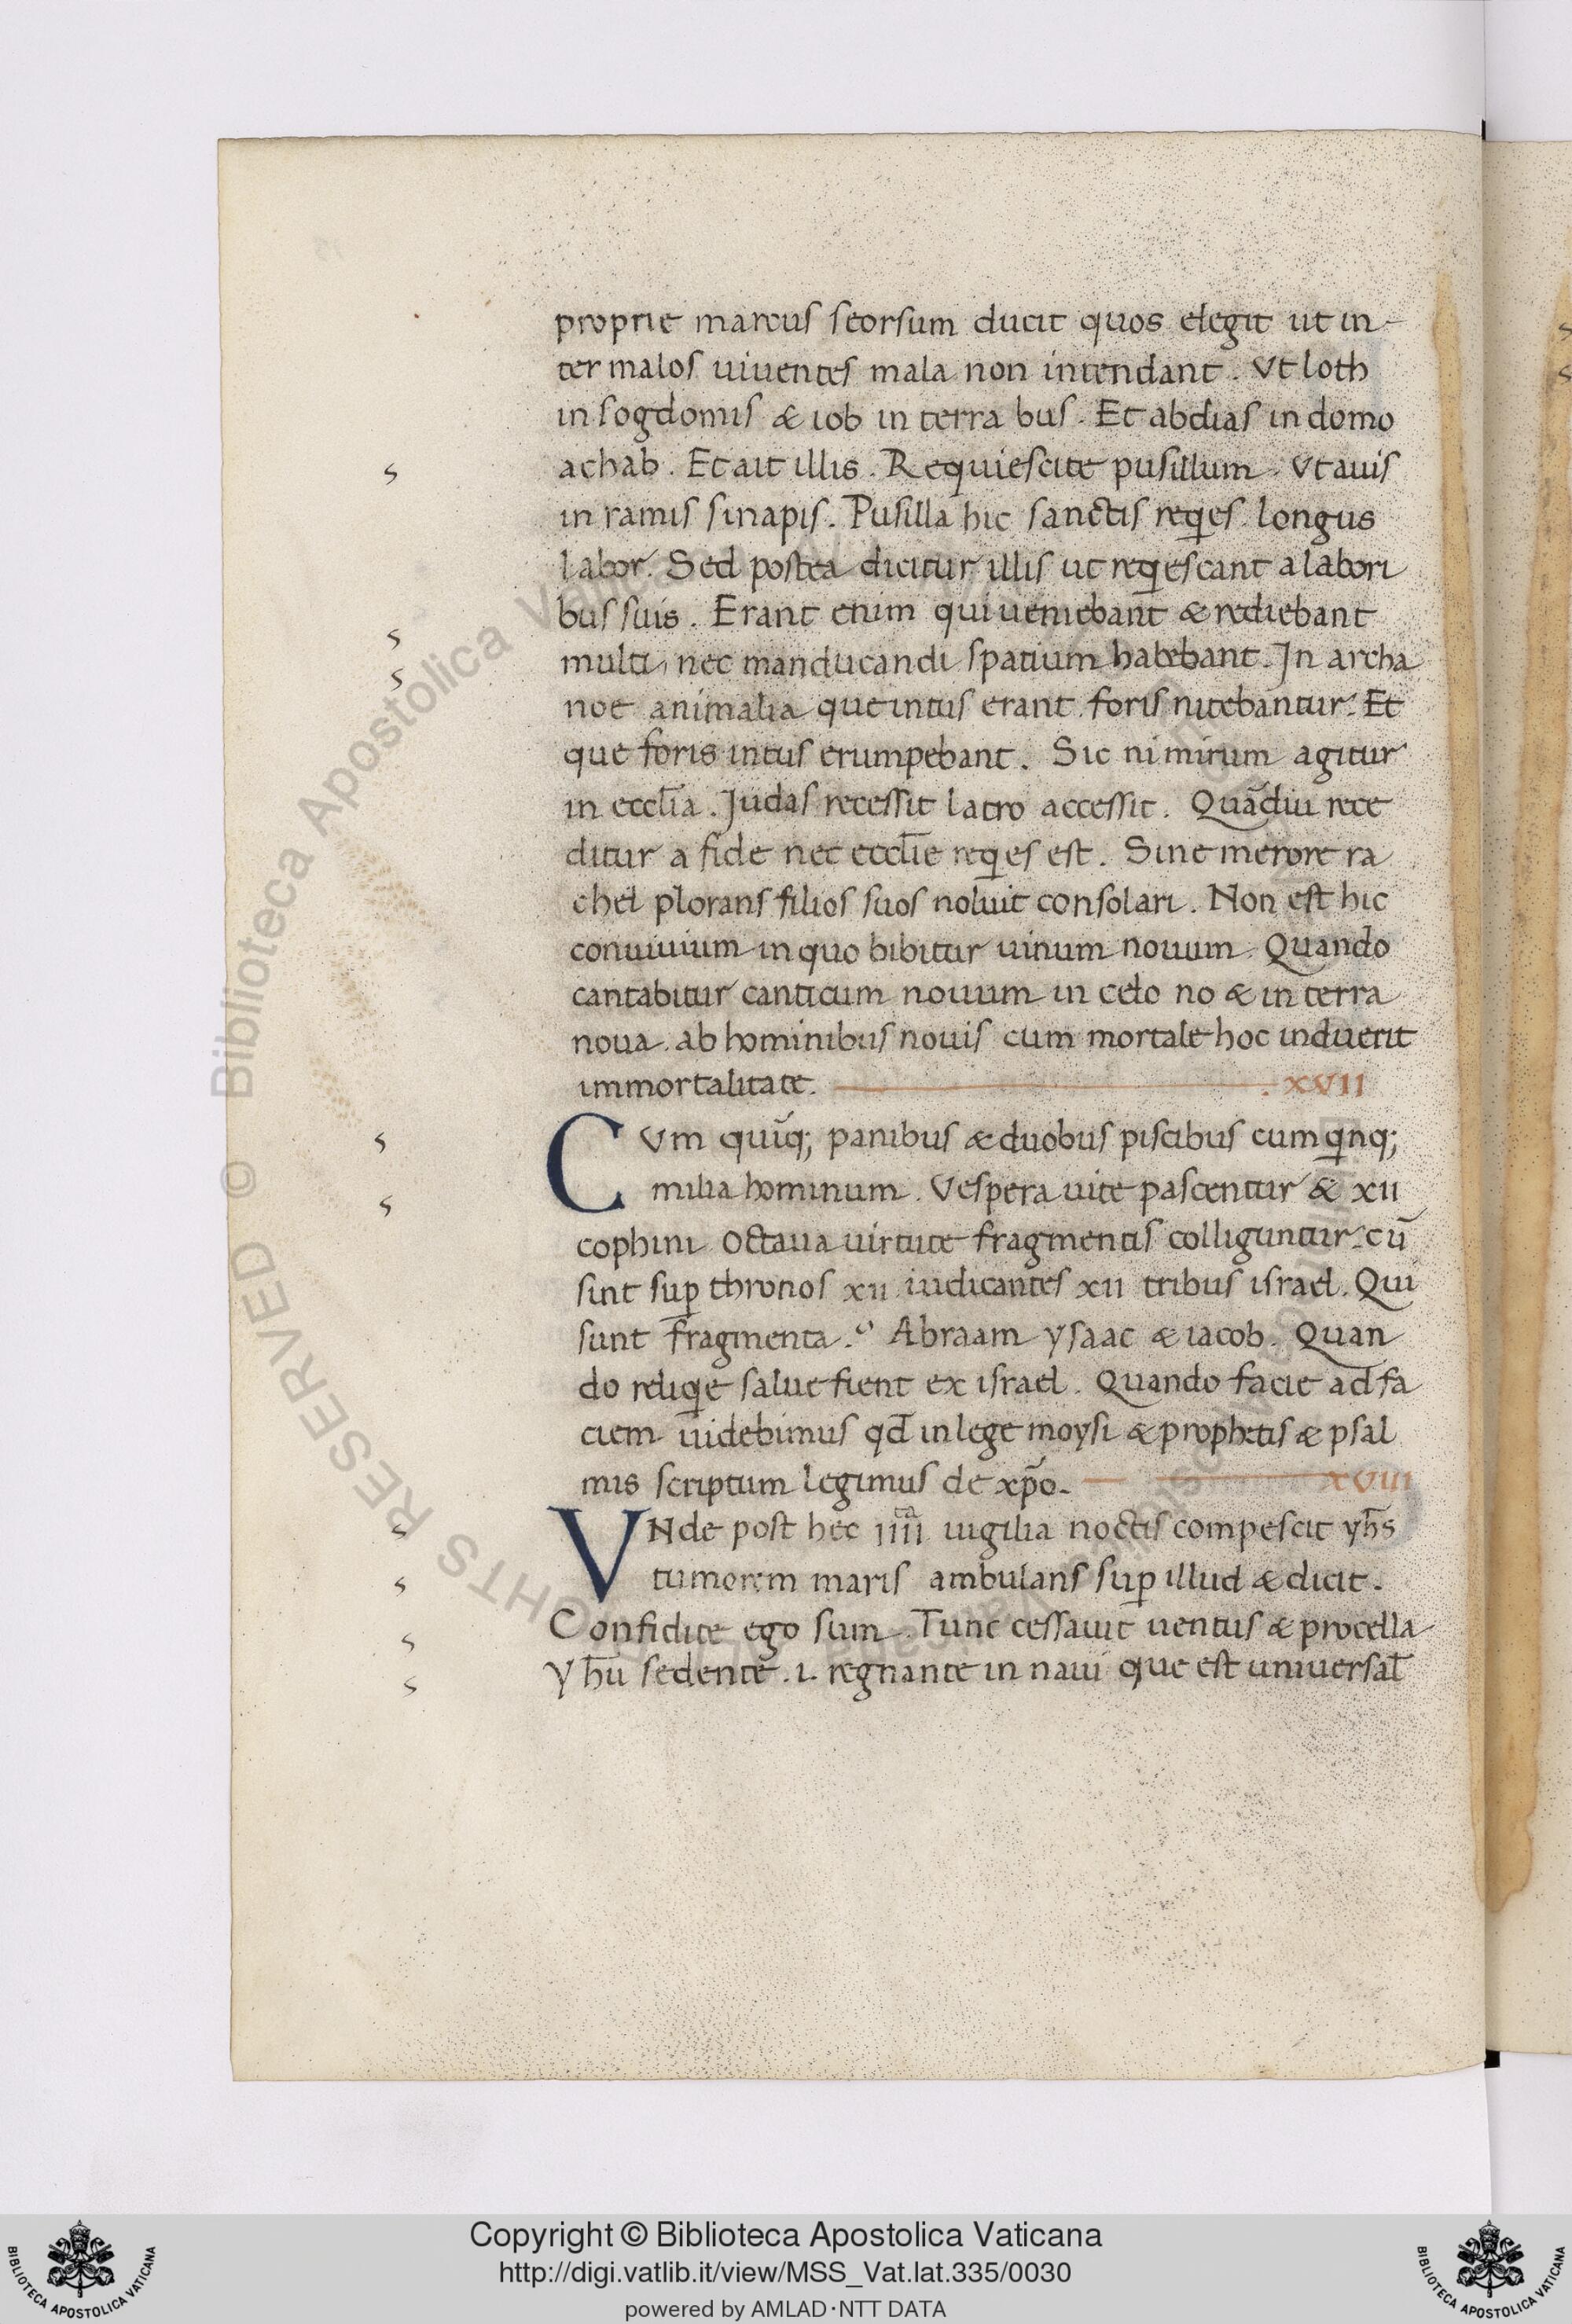 proprie marcus seorsum ducit quos elegit ut in-
ter malos uiuentes mala non intendant. Vt loth
in sogdomis & iob in terra bus. Et abdias in domo
achab. Et ait illis. Requiescite pusillum. Vt auis
in ramis sinapis. Pusilla hic sanctis reqͥes longus
labor. Sed postea dicitur illis ut reqͥescant a labori
bus suis. Erant enim qui ueniebant & rediebant
multi, nec manducandi spatium habebant. In archa
noe animalia que intus erant foris nitebantur. Et
que foris intus erumpebant. Sic nimirum agitur
in eccl̄ia. Judas recessit latro accessit. Quādiu rece
ditur a fide nec eccl̄ie reqͥes est. Sine merore ra
chel plorans filios suos noluit consolari. Non est hic
conuiuium in quo bibitur uinum nouum. Quando
cantabitur canticum nouum in celo no & in terra
noua. ab hominibus nouis cum mortale hoc induerit
immortalitate. . XVII
CVm quīq; panibus & duobus piscibus cum qͥnq;
milia hominum. Vespera uite pascentur & xii
cophini octaua uirtute fragmentis colliguntur. cū
sint suꝑ thronos xii iudicantes xii tribus israel. Qui
sunt fragmenta. Abraam ysaac & iacob. Quan
do reliqͥe salue fient ex israel. Quando facie ad fa
ciem uidebimus qd̄ in lege moysi & prophetis & psal
mis scriptum legimus de xp̄o. XVIII
VNde post hec iiii uigilia noctis compescit yh̄s
tumorem maris ambulans suꝑ illud & dicit.
Confidite ego sum. Tunc cessauit uentus & procella
Yh̄u sedente .i. regnante in naui que est uniuersal̄
© Biblioteca Apostolica Vaticana
RIGHTS RESERVED
Copyright © Biblioteca Apostolica Vaticana
http://digi.vatlib.it/view/MSS_Vat.lat.335/0030
powered by AMLAD·NTT DATA
BIBLIOTECA APOSTOLICA VATICANA
BIBLIOTECA APOSTOLICA VATICANA